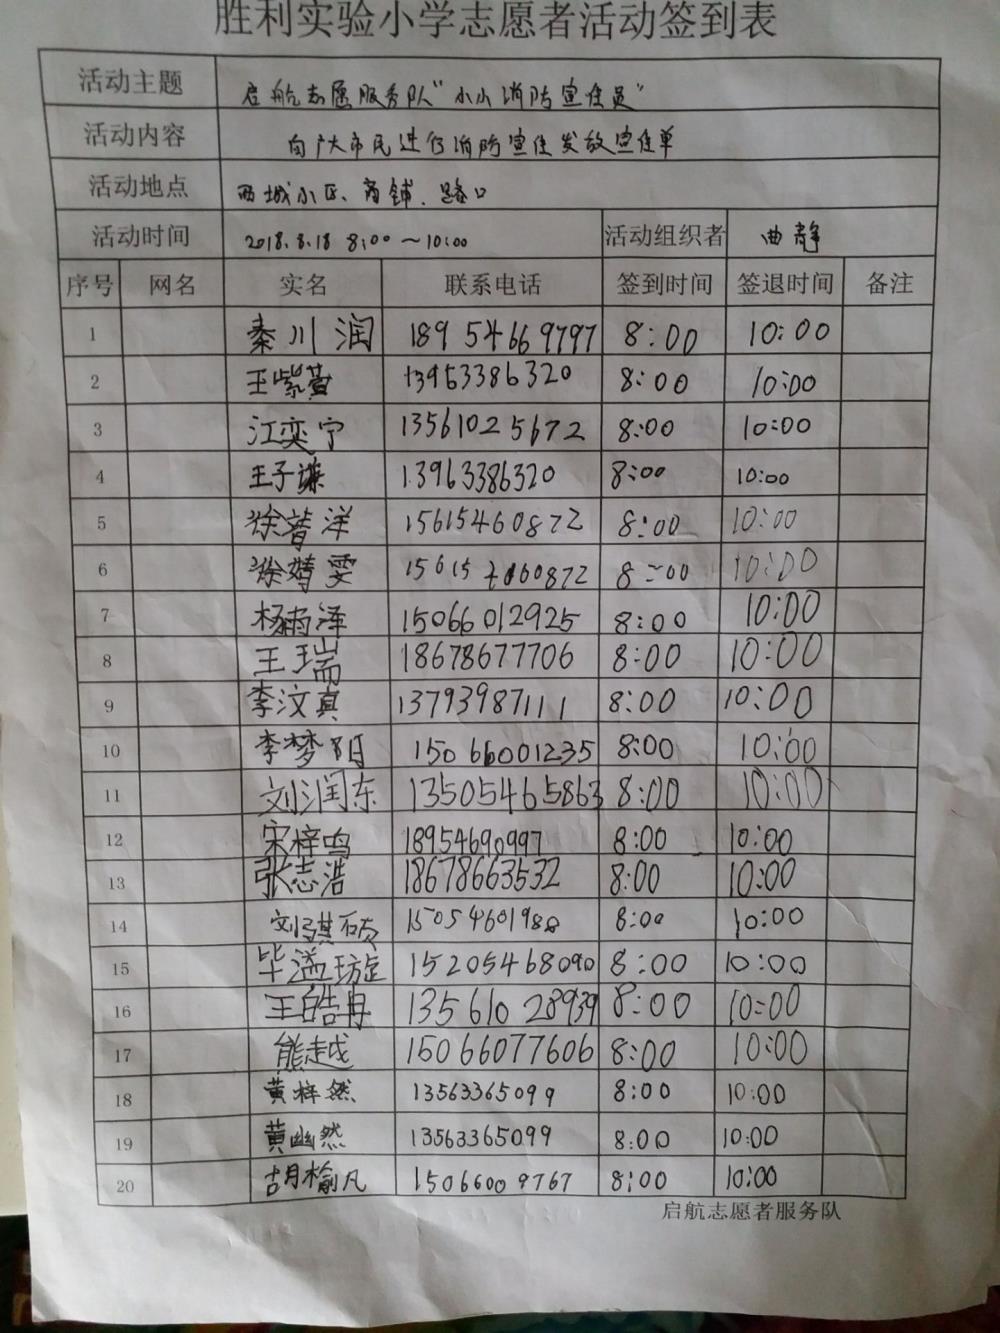 胜利实验小学志愿者活动签到表
活动主题 启航志愿服务队"小小消防宣传员"
活动内容 向广大市民进行消防宣传发放宣传单
活动地点 西城小区、商铺、路口
活动时间 2018.8.18 8:00～10:00 活动组织者 曲静
序号 网名 实名 联系电话 签到时间 签退时间 备注
1 秦川润 18954669797 8:00 10:00
2 王紫萱 13963386320 8:00 10:00
3 江奕宁 13561025672 8:00 10:00
4 王子谦 13963386320 8:00 10:00
5 徐菁洋 15615460872 8:00 10:00
6 徐婧雯 15615460872 8:00 10:00
7 杨雨泽 15066012925 8:00 10:00
8 王瑞 18678677706 8:00 10:00
9 李汶真 13793987111 8:00 10:00
10 李梦阳 15066001235 8:00 10:00
11 刘润东 13505465863 8:00 10:00
12 宋梓鸣 18954690997 8:00 10:00
13 张志浩 18678663532 8:00 10:00
14 刘骐硕 15054601988 8:00 10:00
15 毕溢璇 15205468090 8:00 10:00
16 王皓冉 13561028939 8:00 10:00
17 熊越 15066077606 8:00 10:00
18 黄梓然 13563365099 8:00 10:00
19 黄幽然 13563365099 8:00 10:00
20 胡榆凡 15066009767 8:00 10:00
启航志愿者服务队